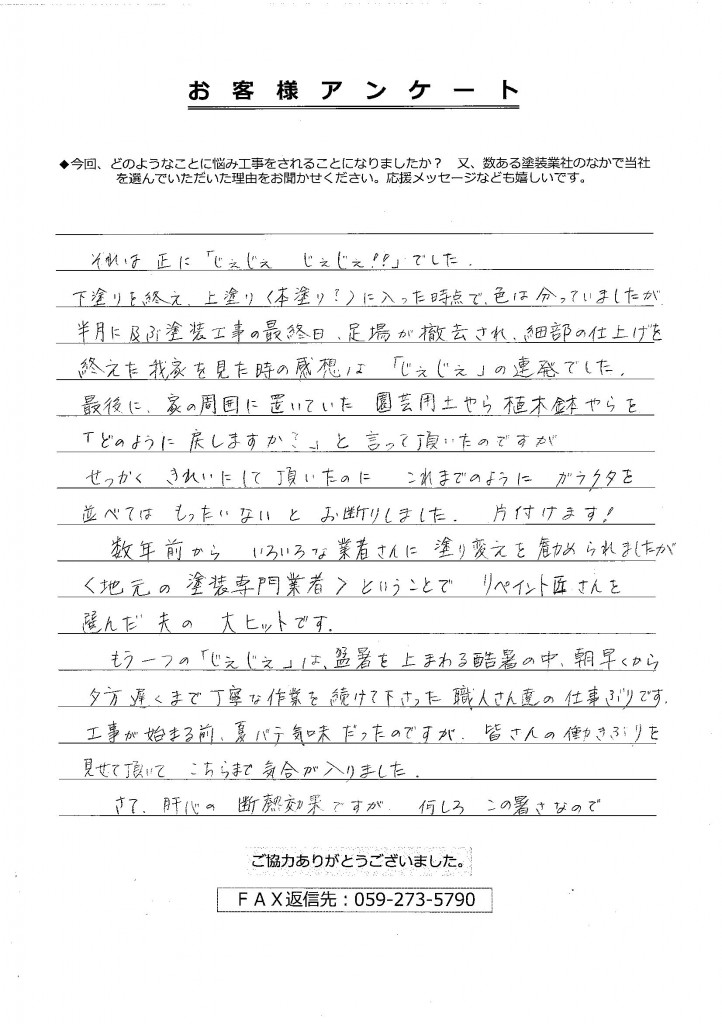 お客様アンケート
◆今回、どのようなことに悩み工事をされることになりましたか？　又、数ある塗装業社のなかで当社
を選んでいただいた理由をお聞かせください。応援メッセージなども嬉しいです。
それは 正に「じぇじぇ　じぇじぇ!!」でした.
下塗りを終え、上塗り〈本塗り？〉に入った時点で、色は分っていましたが
半月に及ぶ塗装工事の最終日、足場が撤去され、細部の仕上げを
終えた我家を見た時の感想は 「じぇじぇ」の連発でした.
最後に、家の周囲に置いていた 園芸用土やら植木鉢やらを
「どのように戻しますか？」と言って頂いたのですが
せっかく きれいにして頂いたのに これまでのように ガラクタを
並べては もったいないと お断りしました. 片付けます!
数年前から いろいろな業者さんに塗り変えを勧められましたが
〈地元の塗装専門業者〉ということで リペイント匠さんを
選んだ夫の 大ヒットです.
もう一つの「じぇじぇ」は、猛暑を上まわる酷暑の中、朝早くから
夕方遅くまで丁寧な作業を続けて下さった職人さん達の仕事ぶりです.
工事が始まる前、夏バテ気味だったのですが、皆さんの働きぶりを
見せて頂いて こちらまで気合が入りました.
さて、肝心の 断熱効果ですが、何しろ この暑さなので
ご協力ありがとうございました。
ＦＡＸ返信先：059-273-5790